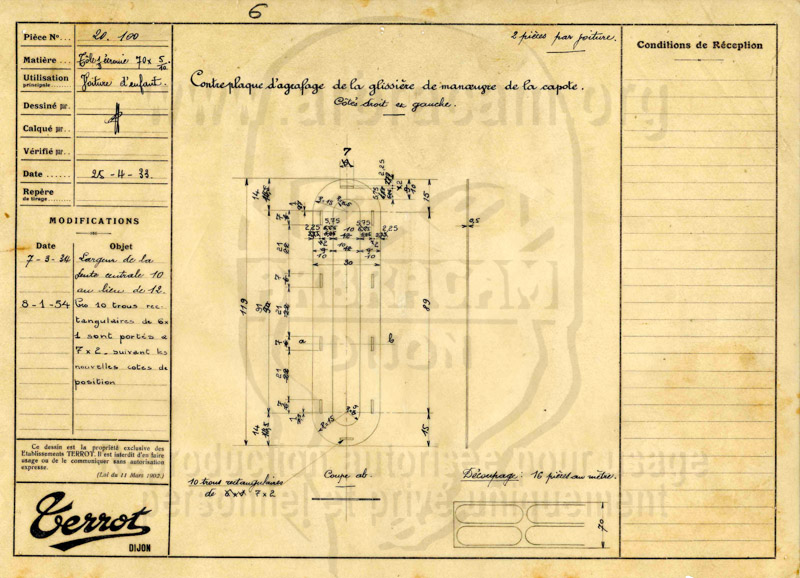 6
Pièce Nº... 20.100
Matière... Tôle Zérowie 70 x 5/10
Utilisation principale... Voiture d'enfant.
Dessiné par..
Calqué par..
Vérifié par...
Date ..... 25-4-33.
Repère de tirage.
MODIFICATIONS
Date Objet
7-3-34 Largeur de la
fente centrale 10
au lieu de 12.
8-1-54 Les 10 trous rec-
tangulaires de 6x
1 sont portés à
7x2_ suivant les
nouvelles cotes de
position
Ce dessin est la propriété exclusive des
Etablissements TERROT. Il est interdit d'en faire
usage ou de le communiquer sans autorisation
expresse.
(Loi du 11 Mars 1902.)
Terrot
DIJON
2 pièces par voiture.
Contreplaque d'agrafage de la glissière de manœuvre de la capote.
Côtés droit et gauche.
7
2,25
5,75
14
15
0,5
2,25 5,75 5,75 2,25
10
30
7
21
119
31
89
7
21
7
a b
21
7
14
15
10 trous rectangulaires
de 6x1 7x2
Coupe ab.
Découpage: 16 pièces au mètre.
70
Conditions de Réception
www.amaresam.org
AMBRACAM
DIJON
reproduction autorisée pour usage
personnel et privé uniquement